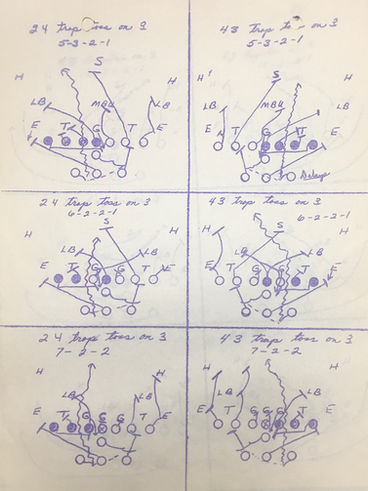 24 trap toss on 3
5-3-2-1
S
H
H
LB
MBU
LB
E
T
G
T
E
43 trap to on 3
5-3-2-1
S
H
H
LB
MBU
LB
E
T
G
T
E
Delays
24 trap toss on 3
6-2-2-1
S
H
H
LB
LB
E
T
G
G
T
E
43 trap toss on 3
6-2-2-1
S
H
H
LB
LB
E
T
G
G
T
E
24 trap toss on 3
7-2-2
H
H
LB
LB
E
T
G
G
G
T
E
43 trap toss on 3
7-2-2
H
H
LB
LB
E
T
G
G
G
T
E